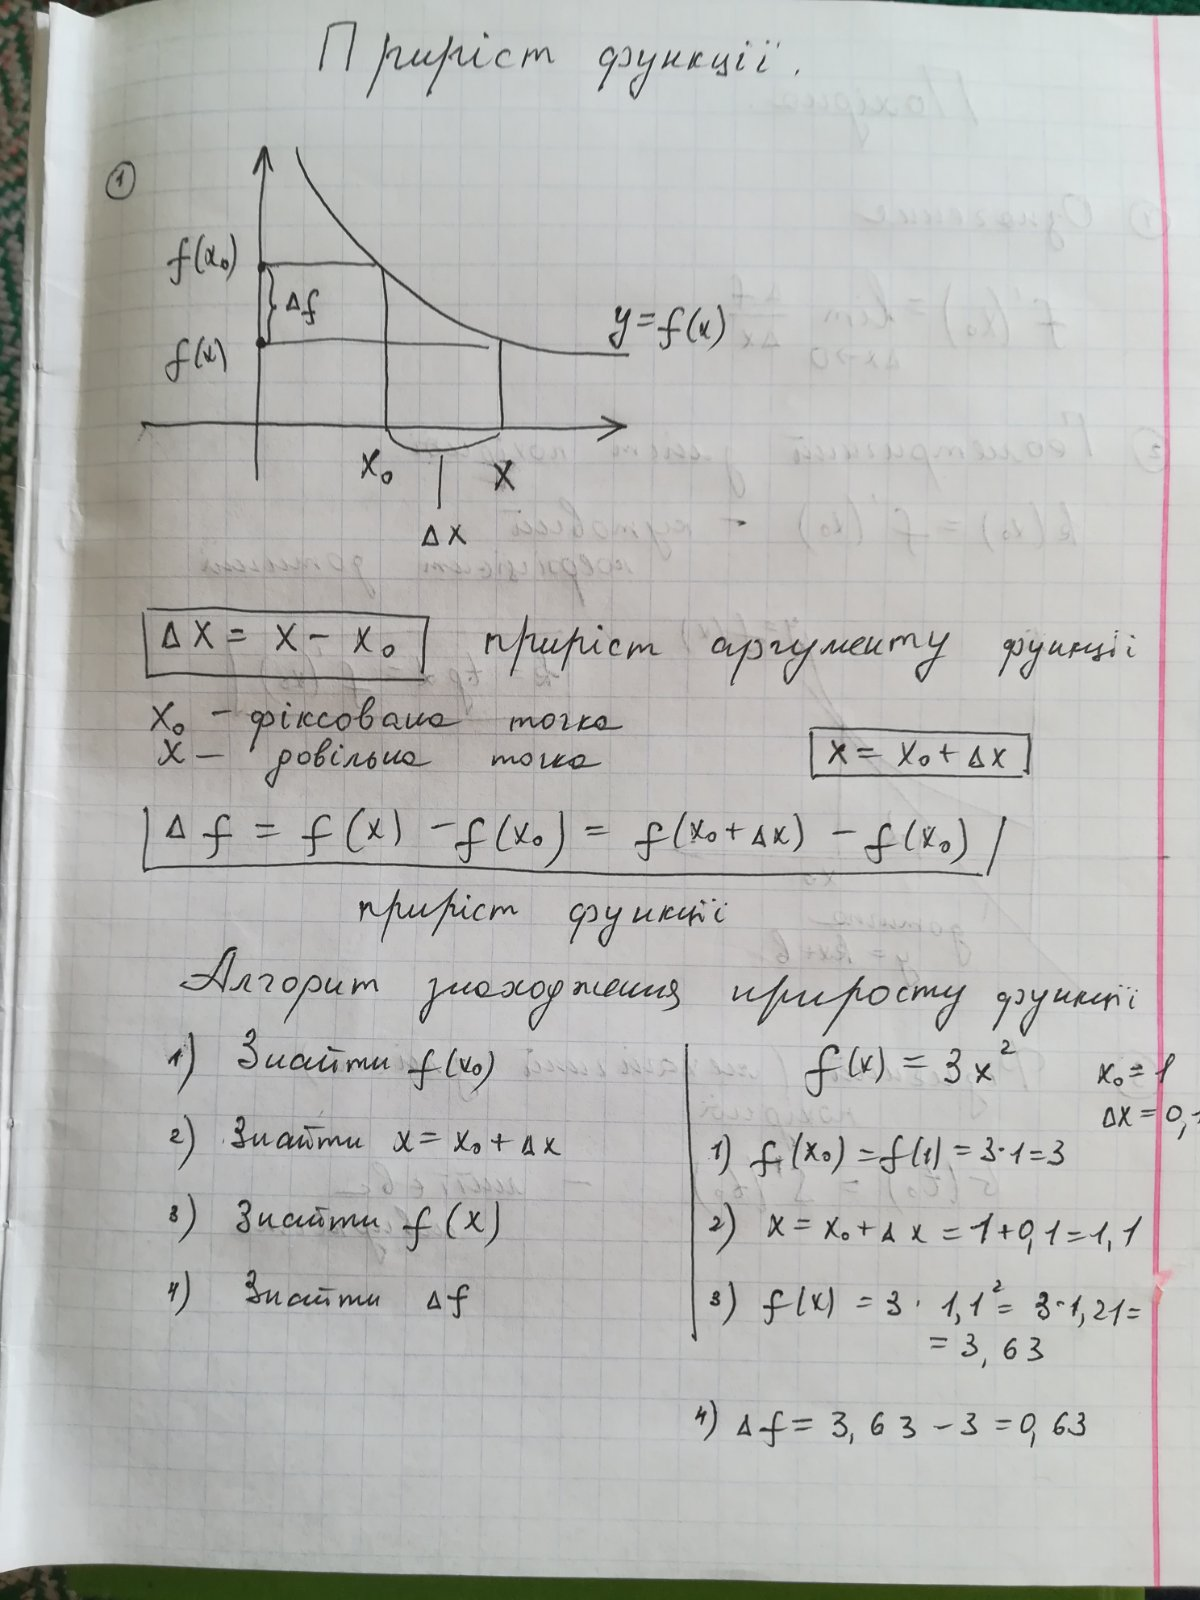 Приріст функції.
1
f(x₀)
Δf
f(x)
y=f(x)
x₀
x
Δx
Δx = x - x₀ приріст аргументу функції
x₀ - фіксована точка
x - довільна точка
x = x₀ + Δx
Δf = f(x) - f(x₀) = f(x₀+Δx) - f(x₀)
приріст функції
Алгорит знаходження приросту функції
1) Знайти f(x₀)
2) Знайти x = x₀ + Δx
3) Знайти f(x)
4) Знайти Δf
f(x) = 3x²
x₀ = 1
Δx = 0,1
1) f(x₀) = f(1) = 3·1=3
2) x = x₀ + Δx = 1+0,1=1,1
3) f(x) = 3 · 1,1² = 3·1,21=
= 3,63
4) Δf = 3,63 - 3 = 0,63